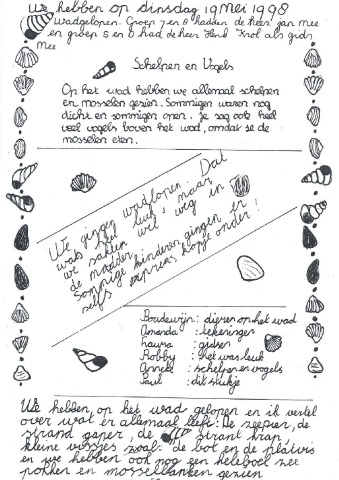 We hebben op dinsdag 19 Mei 1998
Wadgelopen. Groep 7 en 8 hadden de heer Jan mee
en groep 5 en 6 had de heer Henk Krol als gids
mee
Schelpen en Vogels
Op het wad hebben we allemaal schelpen
en mosselen gezien. Sommigen waren nog
dicht en sommigen open. Je zag ook heel
veel vogels boven het wad, omdat ze de
mosselen eten.
We gingen wadlopen. Dat
was heel leuk, maar
we zakten wel weg in
de modder.
Sommige kinderen gingen er
zelfs expres kopje onder!
Boudewijn: dieren op het wad
Amanda : tekeningen
Laura : gidsen
Robby : het was leuk
Anneke : schelpen en vogels
Paul : dit stukje
We hebben op het wad gelopen en ik vertel
over wat er allemaal leeft: De zeepier, de
strand gaper, de strant krap,
kleine visjes zoals: de bot en de platvis
en we hebben ook nog een heleboel zee
pokken en mosselbanken gezien